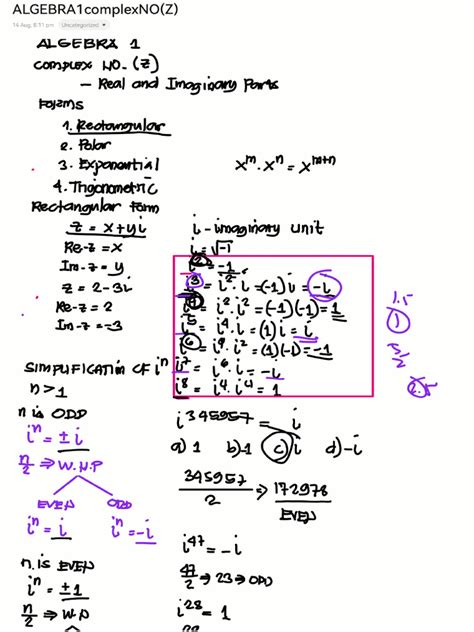 ALGEBRA1complexNO(Z)
14 Aug, 8:51 pm Uncategorized
ALGEBRA 1
COMPLEX NO. (Z)
- Real and Imaginary Parts
FORMS
1. Rectangular
2. Polar
3. Exponential
4. Trigonometric
x^m . x^n = x^{m+n}
Rectangular Form
Z = x+yi
Re-z = x
Im-z = y
z = 2-3i
Re-z = 2
Im-z = -3
i - imaginary unit
i = √-1
i^2 = -1
i^3 = i^2 . i = (-1)i = -i
i^4 = i^2 . i^2 = (-1)(-1) = 1
i^5 = i^4 . i = (1)i = i
i^6 = i^4 . i^2 = (1)(-1) = -1
i^7 = i^6 . i = -i
i^8 = i^4 . i^4 = 1
1.5
1
2.5
SIMPLIFICATION OF i^n
n > 1
n is ODD
i^n = ± i
n/2 ⇒ W.N.P
EVEN ODD
i^n = i i^n = -i
n is EVEN
i^n = ± 1
n/2 ⇒ W.P
i^345957 = i
a) 1 b) -1 c) i d) -i
345957/2 ⇒ 172978
EVEN
i^47 = -i
47/2 → 23 → ODD
i^28 = 1
28